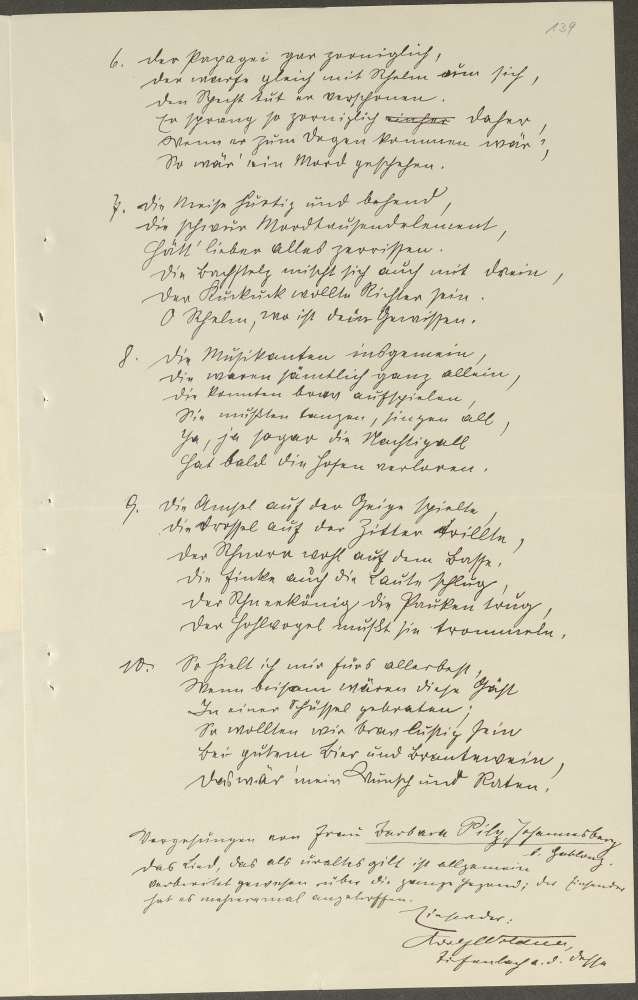 139
6. Der Papagei gar zorniglich,
Der warfe gleich mit Schelm um sich,
Den Specht tut er verschonen.
Er sprang so zorniglich einher daher,
Wenn er zum Degen kommen wär',
So wär' ein Mord geschehen.
7. Die Meise hurtig und behend,
Die schwur Mordtausendelement,
Hätt' lieber alles zerrissen.
Die Bachstelz mischt sich auch mit drein,
Der Kuckuck wollte Richter sein.
O Schelm, wo ist dein Gewissen.
8. Die Musikanten insgemein,
Die waren sämtlich ganz allein,
Die konnten brav aufspielen,
Sie mußten tanzen, singen all,
Ja, ja sogar die Nachtigall
Hat bald die Hosen verloren.
9. Die Amsel auf der Geige spielte,
Die Drossel auf der Zitter trillte,
Der Schnarr wohl auf dem Basse.
Die Finke auch die Laute schlug,
Der Schneekönig die Pauken trug,
Der Hohlvogel mußt sie trommeln.
10. So hielt ich mir fürs allerbest,
Wenn beisam wären diese Gäst
In einer Schüssel gebraten;
So wollten wir brav lustig sein
Bei gutem Bier und Brantewein,
Das wär' mein Wunsch und Raten.
Vorgesungen von Frau Barbara Pilz, Johannesberg
b. Gablonz.
Das Lied, das als uraltes gilt ist allgemein
verbreitet gewesen über die ganze Gegend; der Einsender
hat es mehreremal angetroffen.
Einsender:
Adolf
Tiefenbach a. d. Desse